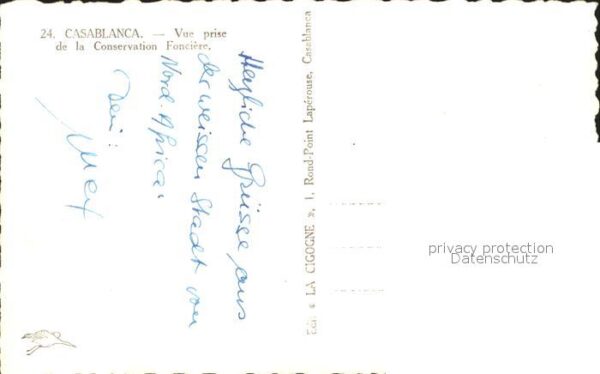 24. CASABLANCA. — Vue prise
de la Conservation Foncière.
Herzliche Grüsse aus
der weissen Stadt von
Nord-Africa.
Dein!
Max
Edit. « LA CIGOGNE », 1, Rond-Point Lapérouse, Casablanca
privacy protection
Datenschutz